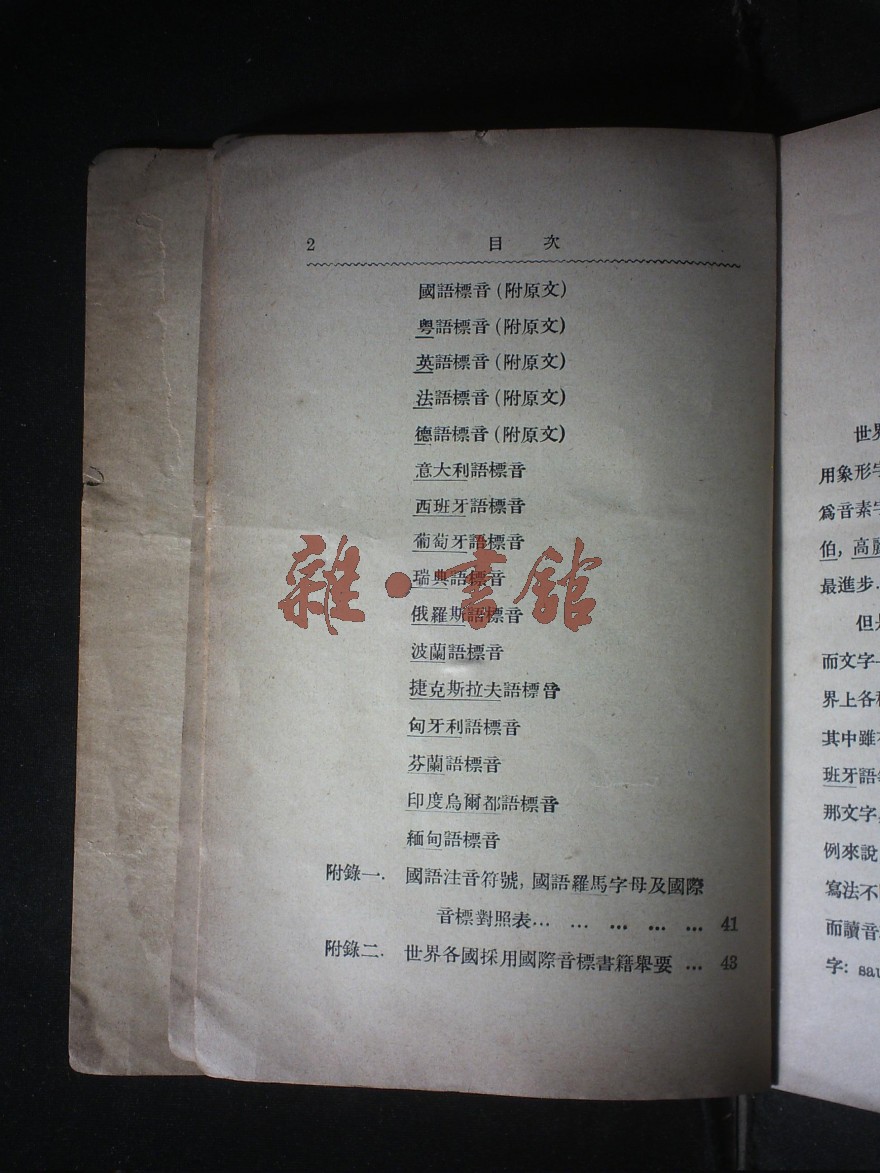 2 目次
國語標音(附原文)
粵語標音(附原文)
英語標音(附原文)
法語標音(附原文)
德語標音(附原文)
意大利語標音
西班牙語標音
葡萄牙語標音
瑞典語標音
俄羅斯語標音
波蘭語標音
捷克斯拉夫語標音
匈牙利語標音
芬蘭語標音
印度烏爾都語標音
緬甸語標音
附錄一. 國語注音符號, 國語羅馬字母及國際
音標對照表... ... ... ... ... 41
附錄二. 世界各國採用國際音標書籍舉要 ... 43
雜·書館
世界
用象形字
爲音素字
伯, 高麗
最進步.
但是
而文字
界上各種
其中雖
班牙語
那文字,
例來說
寫法不
而讀音
字: sau